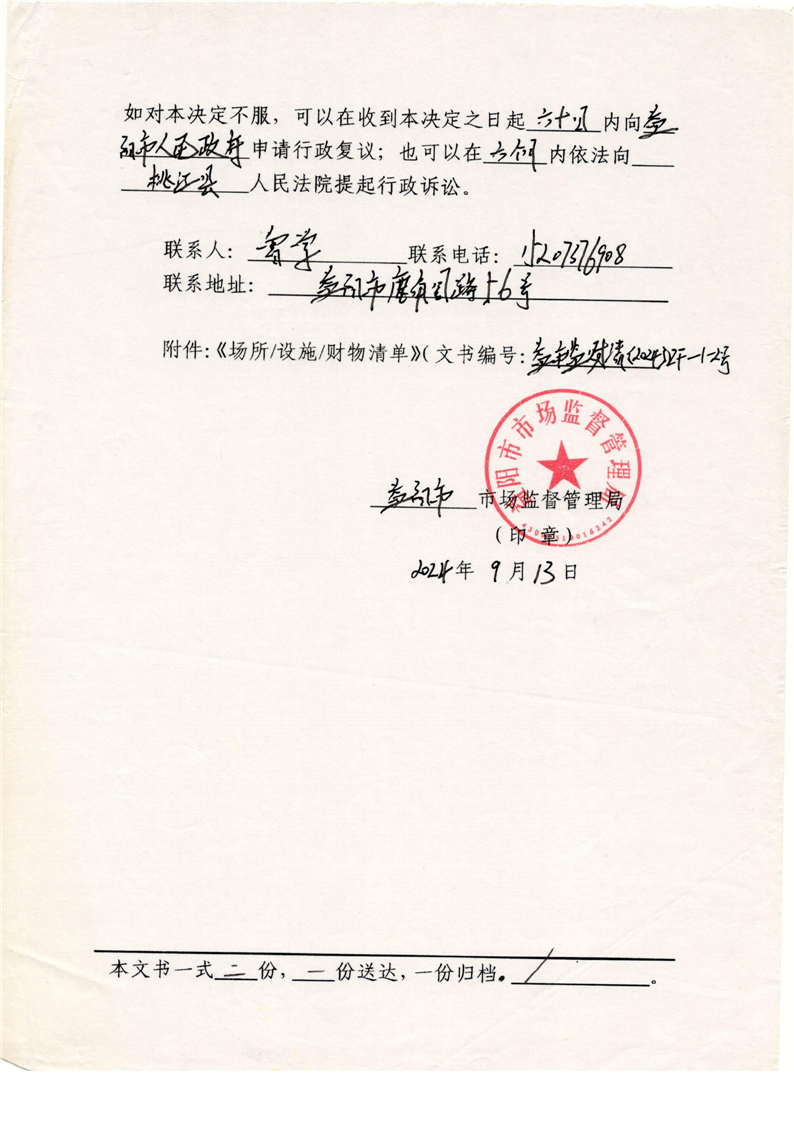 如对本决定不服，可以在收到本决定之日起六十日内向益
阳市人民政府申请行政复议；也可以在六个月内依法向
桃江县人民法院提起行政诉讼。
联系人：曾学 联系电话：15207376908
联系地址：益阳市康富路56号
附件：《场所/设施/财物清单》（文书编号：益市监财清〔2024〕2号
益阳市市场监督管理局
益阳市市场监督管理局
（印 章）
2024年9月13日
本文书一式二份，一份送达，一份归档。/。